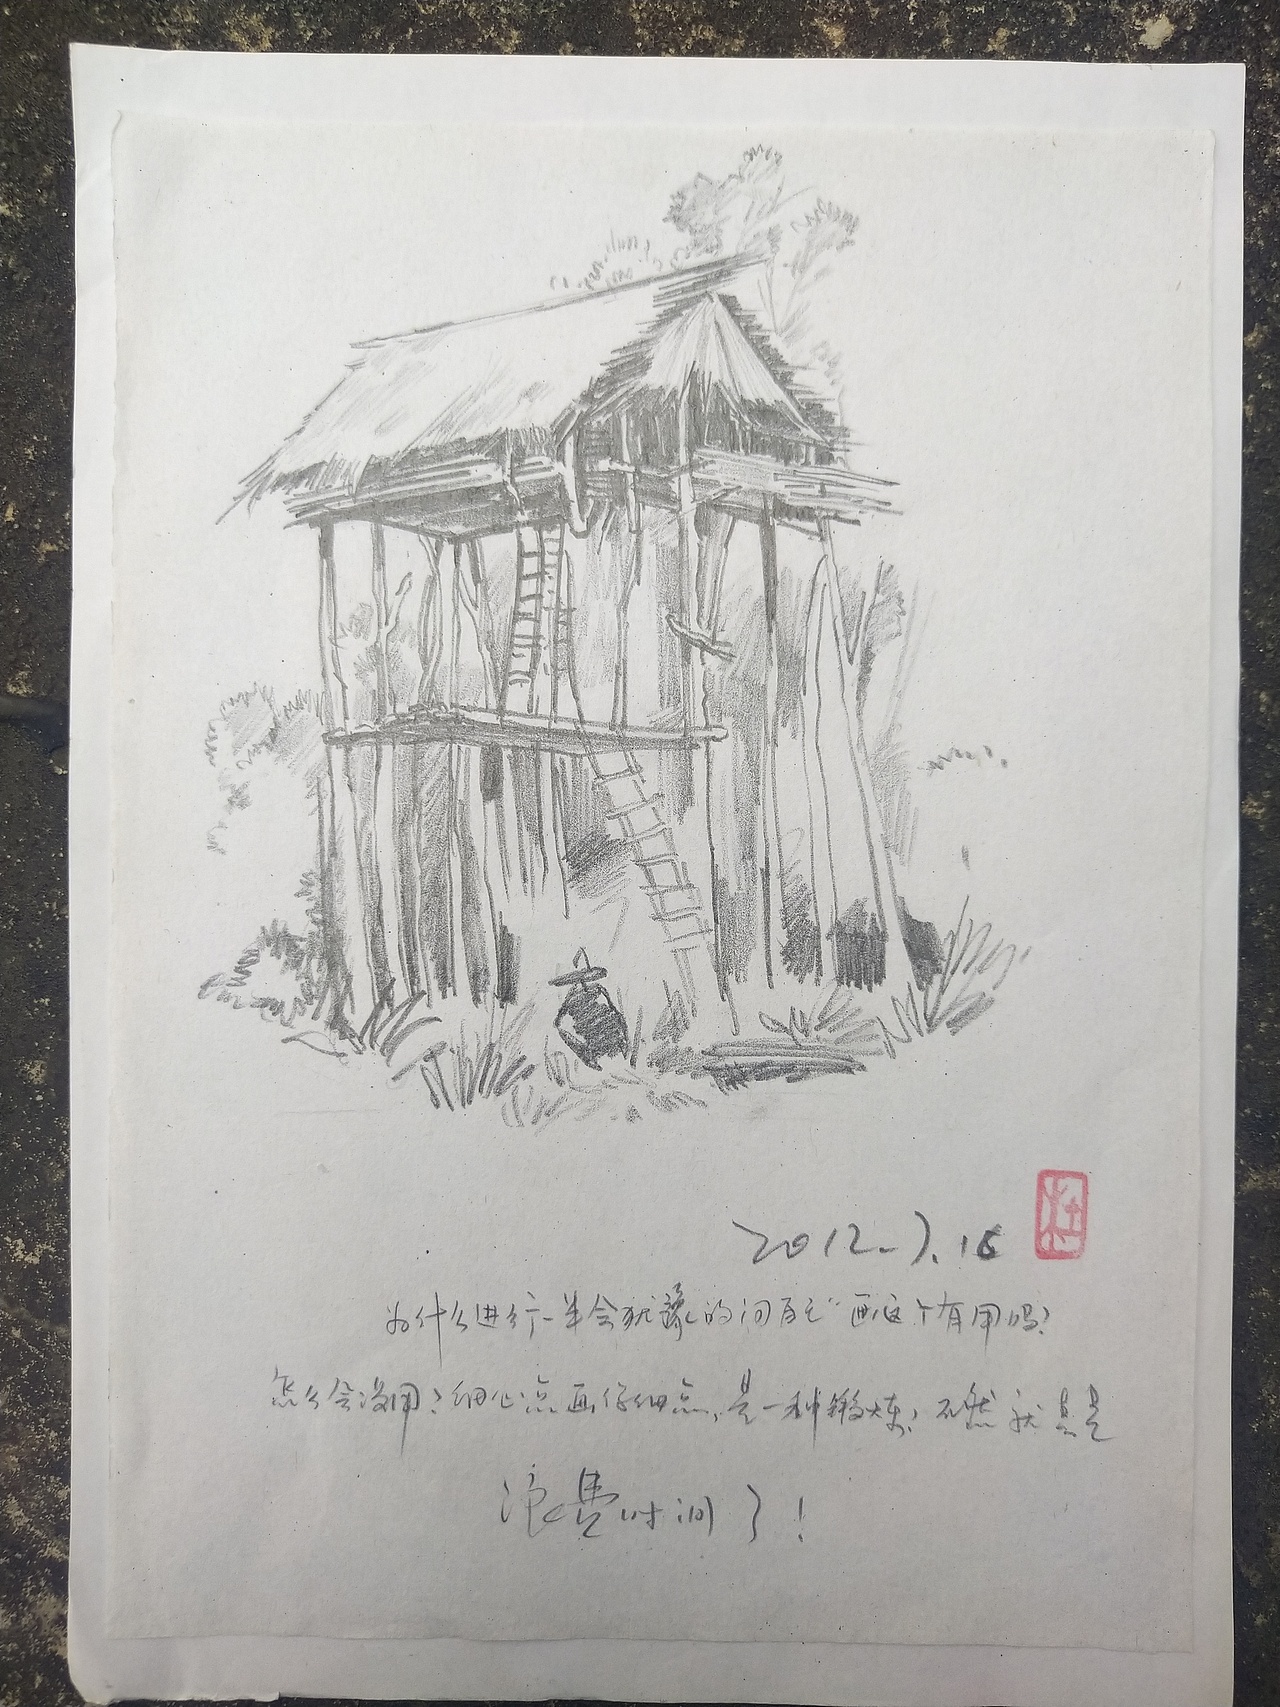 2012.7.16
为什么进行一半会犹豫的问自己"画这个有用吗?
怎么会没用?细心点画仔细点,是一种锻炼,不然就真是
浪费时间了!